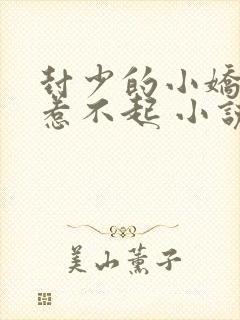 封少的小嬌
惹不起 小說
美山薫子